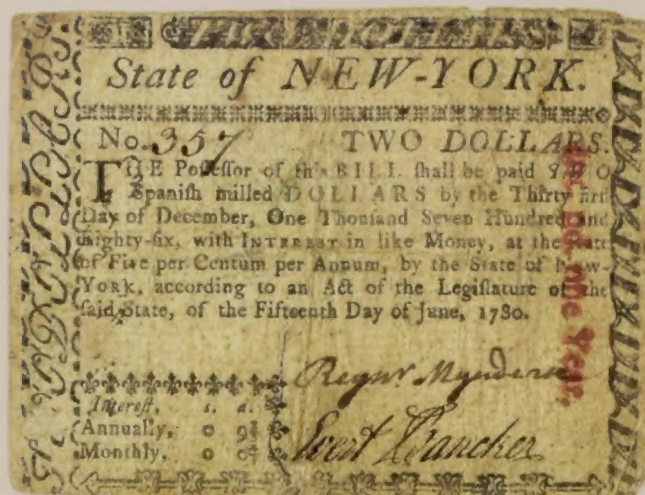 TWO DOLLARS
State of NEW-YORK.
No. 357 TWO DOLLARS.
THE Possessor of this BILL shall be paid TWO
Spanish milled DOLLARS by the Thirty first
Day of December, One Thousand Seven Hundred and
Eighty-six, with INTEREST in like Money, at the Rate
of Five per Centum per Annum, by the State of New-
York, according to an Act of the Legislature of the
said State, of the Fifteenth Day of June, 1780.
Interest, s. d.
Annually, 0 9
Monthly, 0 0
Evert Bancker
one Year.